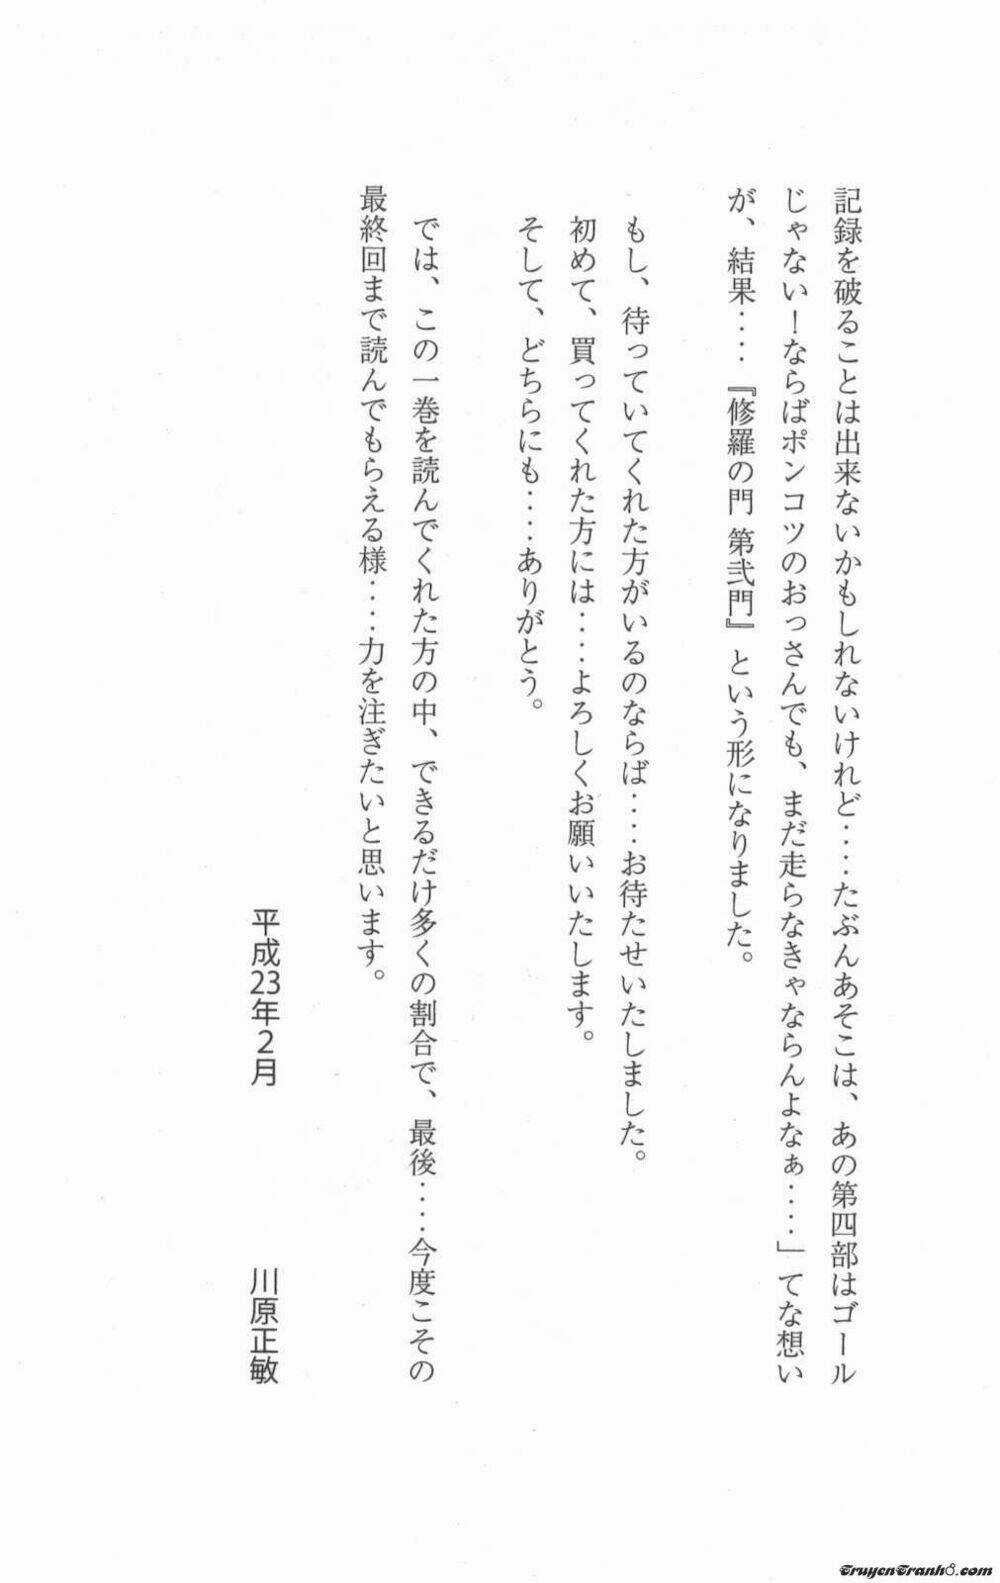 記録を破ることは出来ないかもしれないけれど‥‥たぶんあそこは、あの第四部はゴール
じゃない！ならばポンコツのおっさんでも、まだ走らなきゃならんよなぁ‥‥」てな想い
が、結果‥‥『修羅の門 第弐門』という形になりました。
もし、待っていてくれた方がいるのならば‥‥お待たせいたしました。
初めて、買ってくれた方には‥‥よろしくお願いいたします。
そして、どちらにも‥‥ありがとう。
では、この一巻を読んでくれた方の中、できるだけ多くの割合で、最後‥‥今度こその
最終回まで読んでもらえる様‥‥力を注ぎたいと思います。
平成23年2月 川原正敏
TruyenTranh8.com